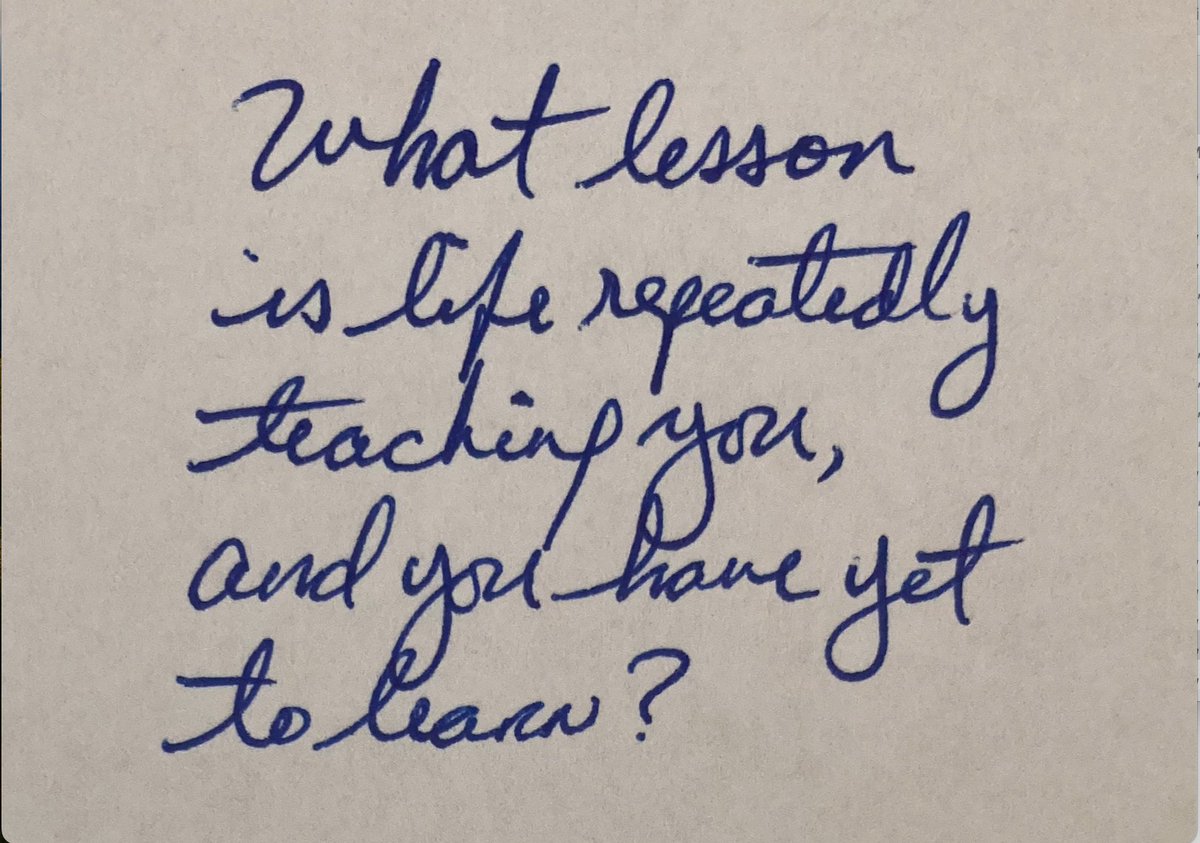 What lesson
is life repeatedly
teaching you,
and you have yet
to learn?